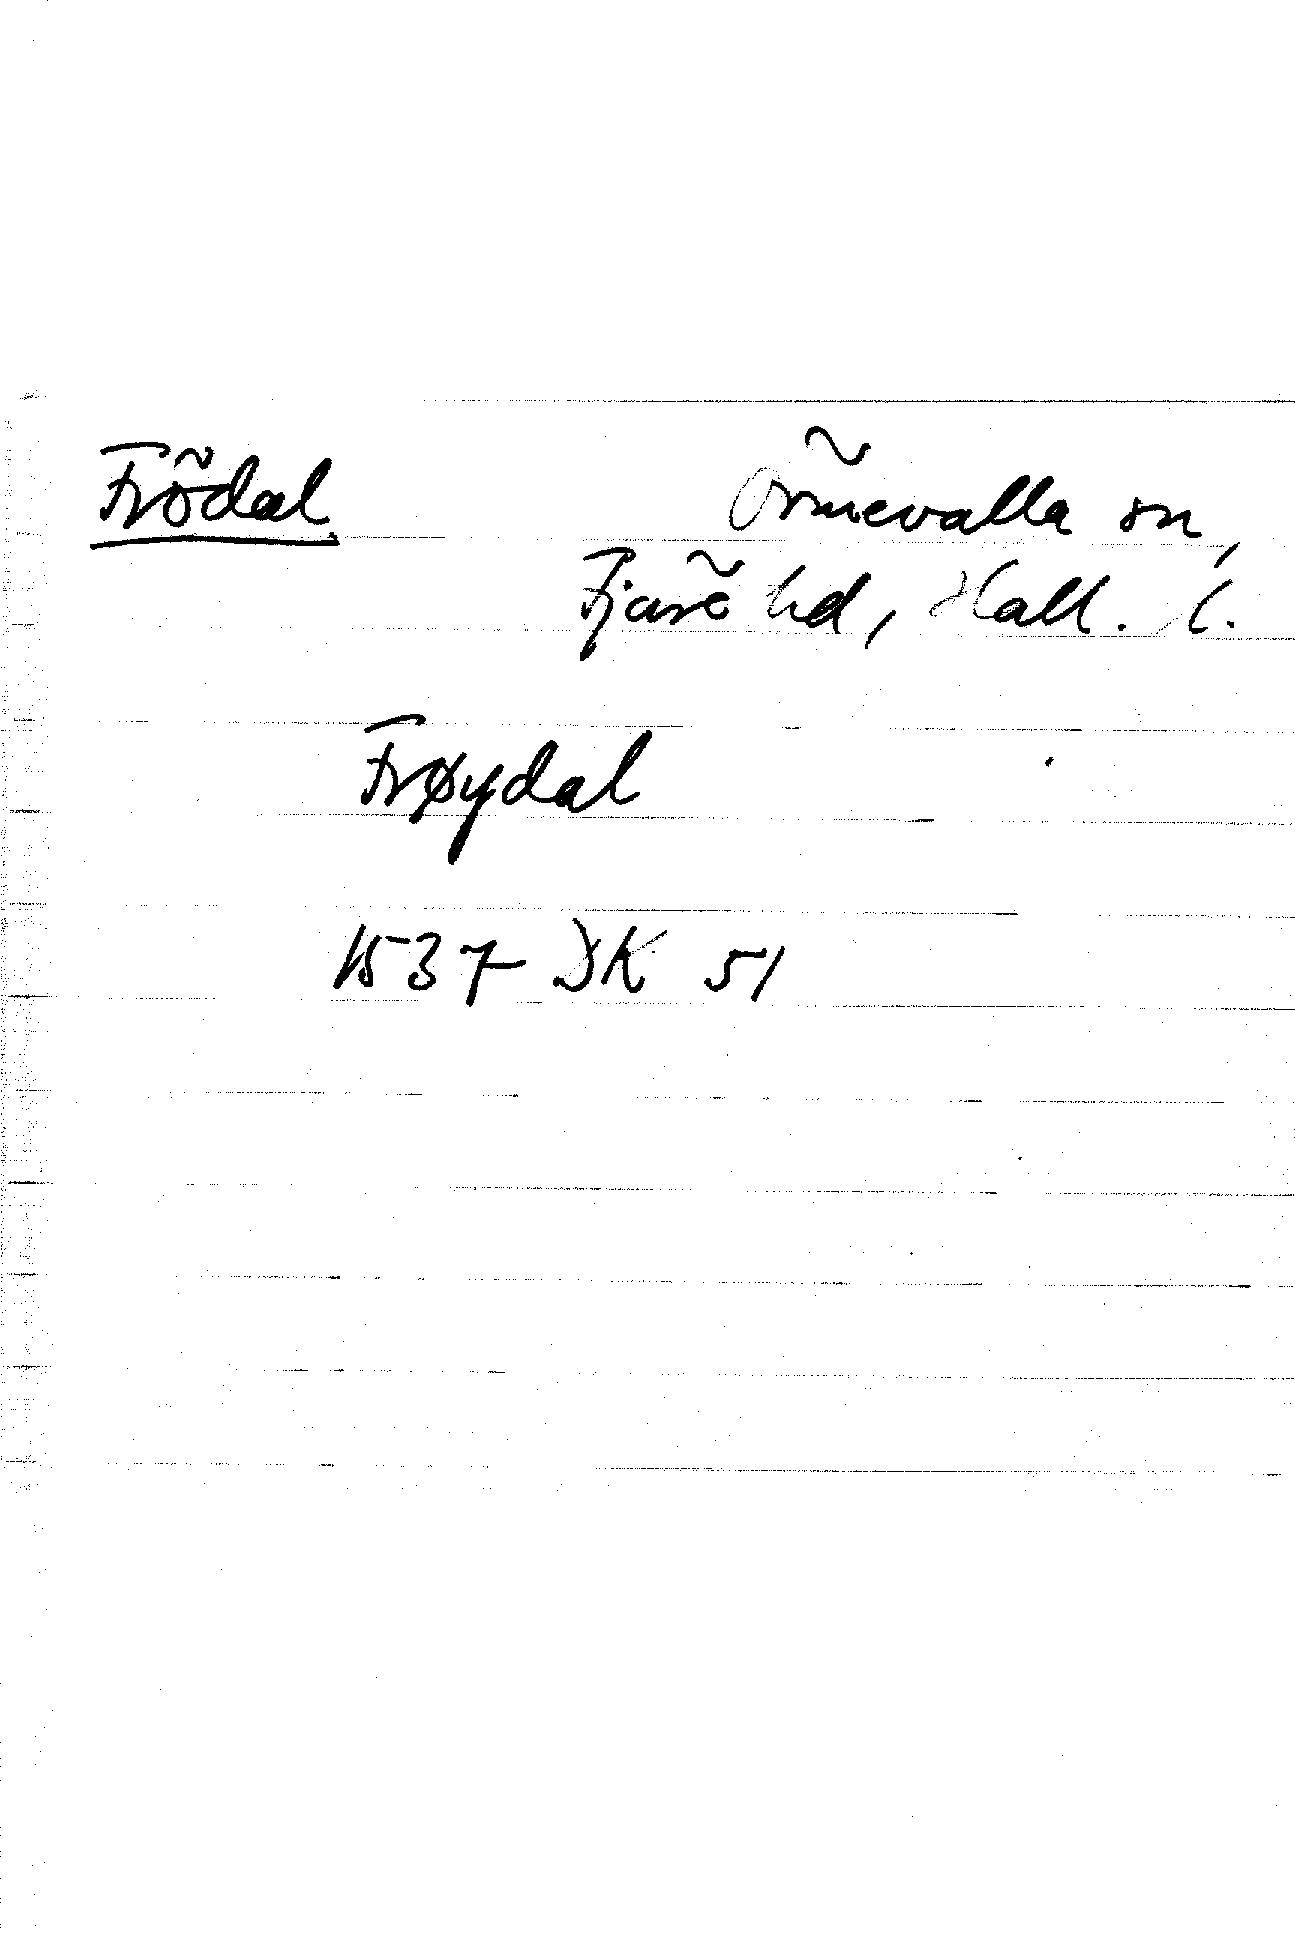 Frödal
Örmevalla sn,
Fjäre hd, Hall. l.
Frøydal
1537 DK 51